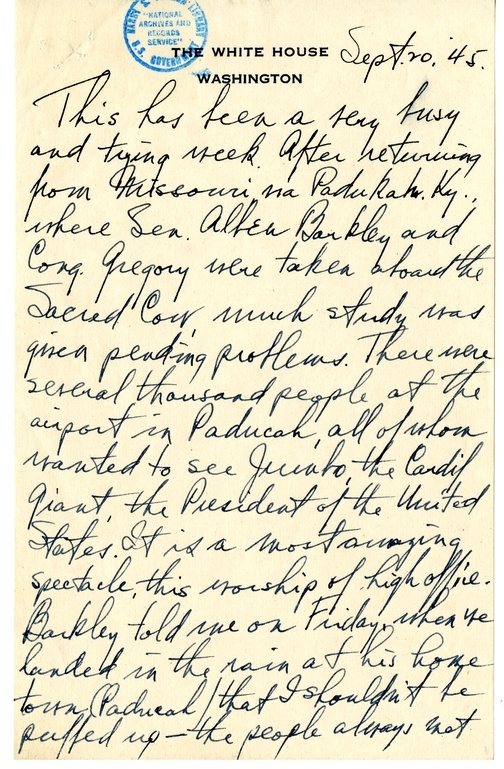 HARRY S. TRUMAN LIBRARY
"NATIONAL
ARCHIVES AND
RECORDS
SERVICE"
U.S. GOVERNMENT
THE WHITE HOUSE
WASHINGTON
Sept. 20, '45.
This has been a very busy
and trying week. After returning
from Missouri via Padukah, Ky.,
where Sen. Alben Barkley and
Cong. Gregory were taken aboard the
Sacred Cow, much study was
given pending problems. There were
several thousand people at the
airport in Paducah, all of whom
wanted to see Jumbo, the Cardif
giant, the President of the United
States. It is a most amazing
spectacle, this worship of high office.
Barkley told me on Friday, when we
landed in the rain at his home
town (Paducah) that I shouldn't be
puffed up — the people always met